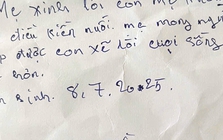 Mẹ xin lỗi con Mẹ k
điều kiện nuôi. mẹ mong ng
p được con sẽ lời cuọi sống
hơn.
n sinh. 8.7.2025.